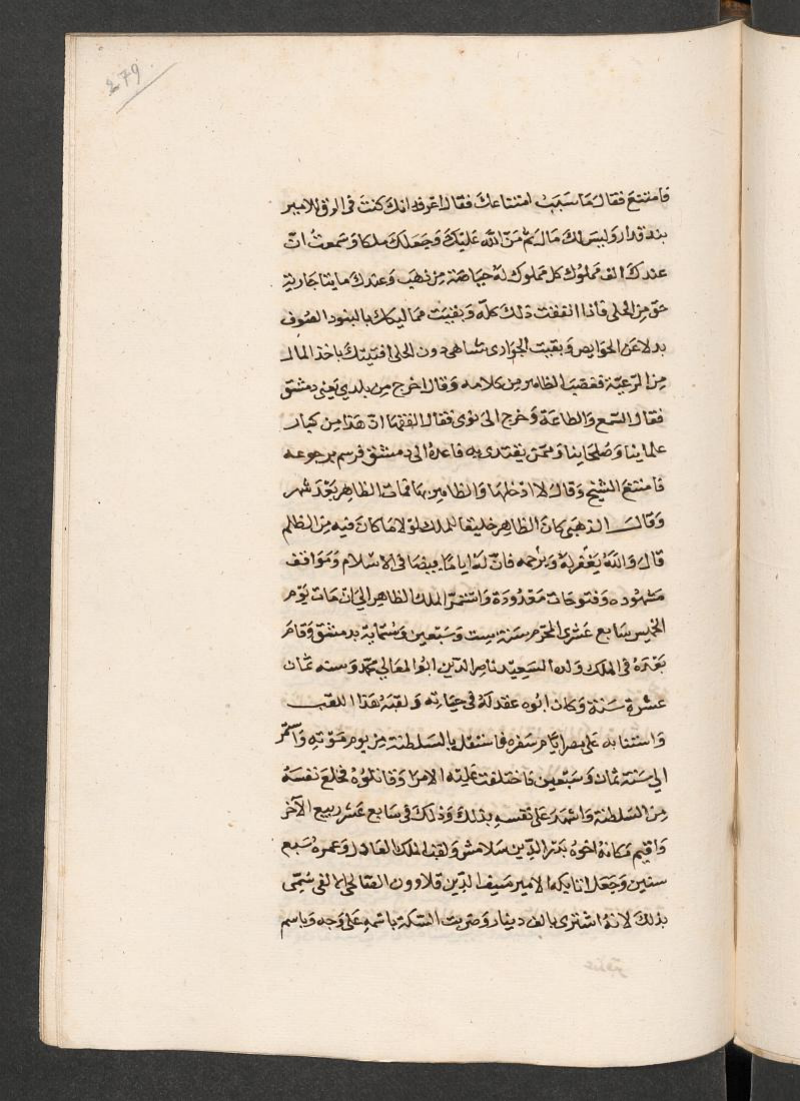 279
فامتنع فقال ما سبب امتناعك فقال اعرف انك كنت فى الرق للامير
بندقدار وليس لك مال ثم منّ الله عليك وجعلك ملكا وسمعتُ انّ
عندك الف مملوك كل مملوك له حياصة من ذهب وعندك مايتا جارية
حق من الحلى فاذا انفقت ذلك كله وبقيت مماليكك بالبنود الصوف
بدلا عن الحوايص وبقيت الجوارى بثيابهن دون الحلى افتيتك باخذ المال
من الرعية فغضب الظاهر من كلامه وقال اخرج من بلدى يعنى دمشق
فقال السمع والطاعة وخرج الى نوى فقال الفقها انّ هذا من كبار
علماينا وصلحاينا وممن يقتدى به فاعده الى دمشق فرسم برجوعه
فامتنع الشيخ وقال لا ادخلها والظاهر بها فمات الظاهر بعد شهر
وقال الذهبى كان الظاهر خليقا للملك لولا ما كان فيه من الظلم
قال والله يغفر له ويرحمه فانّ له اياما بيضا فى الاسلام ومواقف
مشهوده وفتوحات معدودة واستمرّ الملك الظاهر الى ان مات يوم
الخميس سابع عشرى المحرم سنة ست وسبعين وستماية بدمشق وقام
بعده فى الملك ولده السعيد ناصر الدين ابوا المعالى محمد وسنه ثمان
عشرة سنة وكان ابوه عقد له فى حياته ولقبه هذا اللقب
واستنابه على مصر ايام سفره فاستقل بالسلطنة من يوم موته واستمر
الى سنة ثمان وسبعين فاختلفت عليه الامرا وقاتلوه فخلع نفسه
من السلطنة واشهد على نفسه بذلك وذلك فى سابع عشر ربيع الآخر
واقيم مكانه اخوه بدر الدين سلامش ولقب الملك العادل وعمره سبع
سنين وجعل اتابكه الامير سيف الدين قلاوون الصالحى الالفى سُمّى
بذلك لانه اشترى بالف دينار وضربت السكة باسمه على وجه وباسم